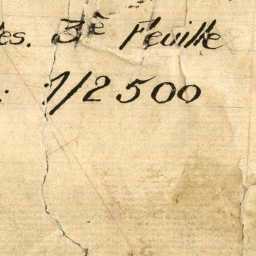 es. 3e Feuille
: 1/2500